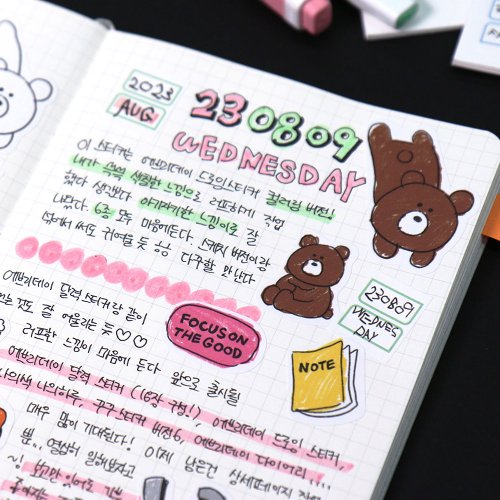 2023
AUG
230809
WEDNESDAY
이 스티커는 에브리데이 드로잉스티커 컬러링 버전!
내가 색칠한 느낌으로 러프하게 작업
했다 생각보다 아기자기한 느낌이로 잘
나왔다. 6종 모두 마음에든다. 스케치 버전이랑
섞어서 써도 귀여울 듯 ㅎㅎ 다꾸할 맛 난다
230809
WEDNES
DAY
에브리데이 달력 스티커랑 같이
쓰는것도 잘 어울리는 듯 ♡♡
러프한 느낌이 마음에 든다 앞으로 출시될
FOCUS ON
THE GOOD
NOTE
에브리데이 달력 스티커 (16장 구성!), 에브리데이 드로잉 스티커,
나의색 나의하루, 꾸꾸 스티커 버전6, 에브리데이 다이어리....
매우 많이 기대된다! 이제 남은건 상세페이지 작
뿐.. 열심히 일해보자고